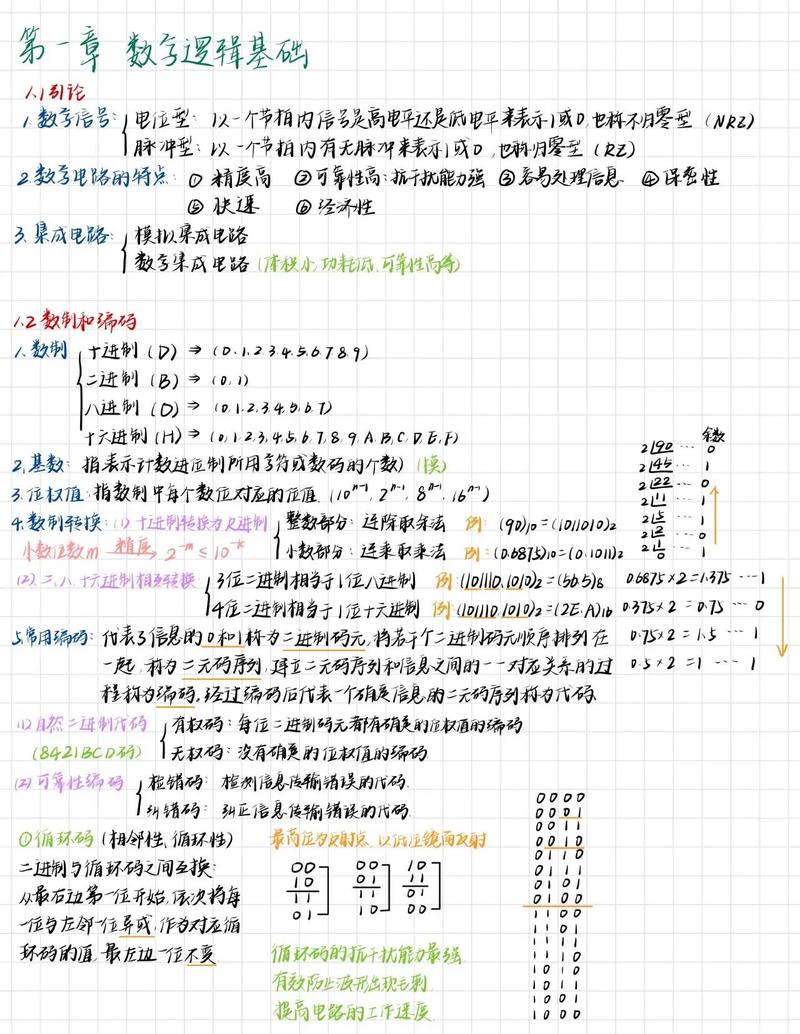 第一章 数字逻辑基础
1.1 引论
1. 数字信号: 电位型: 以一个节拍内信号是高电平还是低电平来表示1或0, 也称不归零型 (NRZ)
脉冲型: 以一个节拍内有无脉冲来表示1或0, 也称归零型 (RZ)
2. 数字电路的特点: ① 精度高 ②可靠性高: 抗干扰能力强 ③容易处理信息 ④保密性
⑤ 快速 ⑥ 经济性
3. 集成电路: 模拟集成电路
数字集成电路 (体积小, 功耗低, 可靠性高等)
1.2 数制和编码
1. 数制 十进制 (D) ⇒ (0.1.2.3.4.5.6.7.8.9)
二进制 (B) ⇒ (0,1)
八进制 (O) ⇒ (0.1.2.3.4.5.6.7)
十六进制 (H) ⇒ (0,1.2.3.4.5.6.7.8.9.A.B.C.D.E.F)
2. 基数: 指表示计数进位制所用字符或数码的个数) (模)
3. 位权值: 指数制中每个数位对应的位值. (10ⁿ⁻¹, 2ⁿ⁻¹, 8ⁿ⁻¹, 16ⁿ⁻¹)
4. 数制转换: (1) 十进制转换为R进制 整数部分: 连除取余法 例: (90)₁₀=(1011010)₂
小数位数m 精度 2⁻ᵐ ≤ 10⁻ᵏ 小数部分: 连乘取乘法 例: (0.6875)₁₀=(0.1011)₂
余数
2 90 ··· 0
2 45 ··· 1
2 22 ··· 0
2 11 ··· 1
2 5 ··· 1
2 2 ··· 0
2 1 ··· 1
0
(2) 二、八、十六进制相互转换 3位二进制相当于1位八进制 例: (101110.1010)₂=(56.5)₈
4位二进制相当于1位十六进制 例: (101110.1010)₂=(2E.A)₁₆
0.6875×2=1.375 ··· 1
0.375×2=0.75 ··· 0
0.75×2=1.5 ··· 1
0.5×2=1 ··· 1
5. 常用编码: 代表了信息的0和1称为二进制码元, 将若干个二进制码元顺序排列在
一起, 称为二元码序列, 建立二元码序列和信息之间的一一对应关系的过
程称为编码. 经过编码后代表一个确定信息的二元码序列称为代码.
(1) 自然二进制代码 有权码: 每位二进制码元都有确定的位权值的编码
(8421BCD码) 无权码: 没有确定的位权值的编码.
(2) 可靠性编码 检错码: 检测信息传输错误的代码.
纠错码: 纠正信息传输错误的代码.
①循环码 (相邻性、循环性) 最高位为反射点, 以低位镜面反射
二进制与循环码之间互换:
从最右边第一位开始, 依次将每
一位与左邻一位异或, 作为对应循
环码的值, 最左边一位不变
00 00 10
10 01 11
11 11 01
01 10 00
循环码的抗干扰能力最强
有效防止波形出现毛刺
提高电路的工作速度
0000
0001
0011
0010
0110
0111
0101
0100
1100
1101
1111
1110
1010
1011
1001
1000